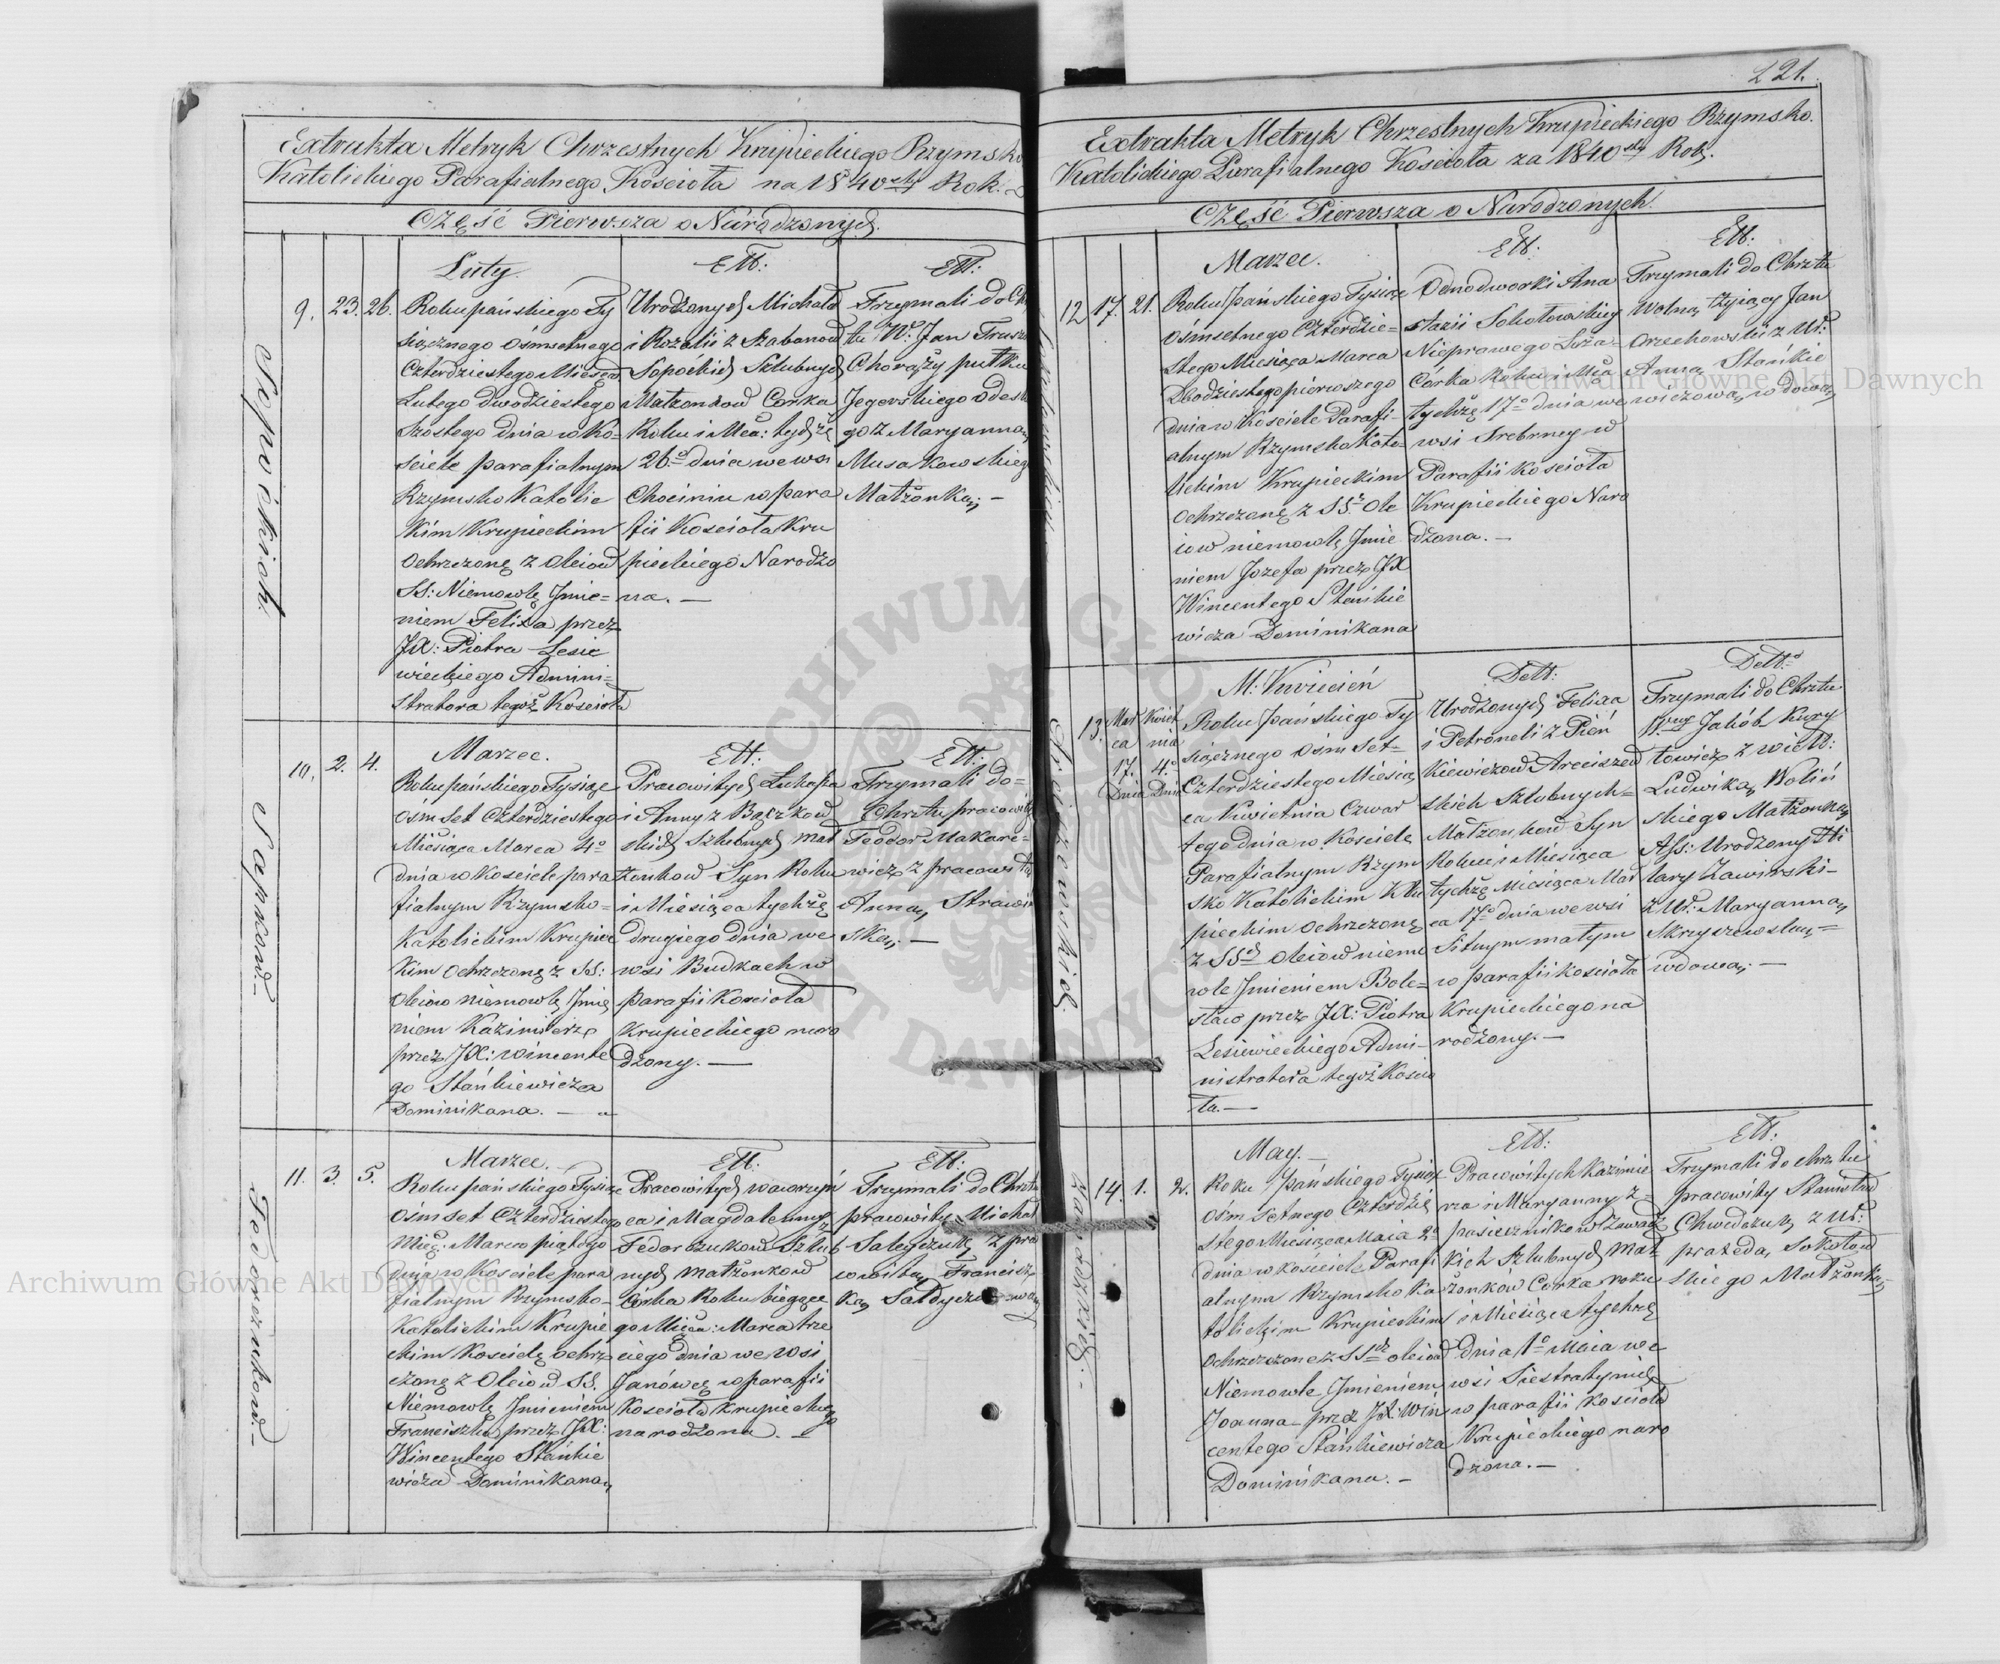 Extrakta Metryk Chrzestnych Krupieckiego Rzymsko
Katolickiego Parafialnego Kościoła na 1840 Rok.
Część Pierwsza o Narodzonych.
Sopoćkiach.
9. 23. 26.
Luty.
Roku pańskiego Ty
siącznego ośmsetnego
Czterdziestego Miesąca
Lutego dwódziestego
szostego dnia w Ko-
sciele parafialnym
Rzymsko Katolic
Kim Krupieckim
Ochrzczonę z Oleiow
SS: Niemowlę Jmie=
niem Felixa przez
JX: Piotra Lesie
wieckiego Admini=
stratora tegoż Kościoła
Ett:
Urodzonych Michała
i Rozalii z Szabanow
Sopockich Szlubnych
Matzonkow Corka
Roku i Mca: tychże
26.o dnia we wsi
Chociniu w para
fii Kościoła Kru
pieckiego Narodzo
na. —
Ett:
Trzymali do
tu W: Jan
Chorąży pułku
Jegerskiego Odes
go z Maryanną
Musakowskiego
Małżonką; —
10. 2. 4.
Marzec.
Roku pańskiego Tysiąc
Ośm set Czterdziestego
Miesiąca Marca 4o
dnia w Kosciele para
fialnym Rzymsko=
Katolickim Krupie
Kim Ochrzczonę z SS:
Oleiow niemowlę Jmię
niem Kazimierz
przez JX: Wincente
go Stańkiewicza
Dominikana. —
Ett:
Pracowitych Łukasza
i Anny z Bączkow
skich Szlubnych Mał
żonkow Syn Roku
i Miesiąca tychżę
drugiego dnia we
wsi Budkach w
parafii Kościoła
Krupieckiego naro
dzony. —
Ett.
Trzymali do=
Chrztu pracowity
Teodor Makare=
wicz z pracowitą
Anną
ską; —
11. 3. 5.
Fedorczukow. —
Marzec.
Roku pańskiego Tysiąc
Ośm set Czterdziestego
Mieś: Marca piątego
dnia w Kosciele para
fialnym Rzymsko=
Katolickim Krupie
ckim Kosciele ochrz
czonę z Oleiow SS.
Niemowlę Jmieniem
Franciszka przez JX:
Wincentego Stańkie
wicza Dominikana,
Ett:
Pracowitych Wawrzyń
ca i Magdalenny
Fedorczukow Szlub
nych Matżonkow
Córka Roku biezące
go Mięca: Marca trze
ciego dnia we wsi
Janówcę w parafii
Kosciola Krupieckiego
narodzona. —
Ett:
Trzymali do Chrztu
pracowity Michał
z pra
cowitą Francisz
ką
221.
Extrakta Metryk Chrzestnych Krupieckiego Rzymsko.
Katolickiego Parafialnego Kościoła za 1840 Rok.
Część Pierwsza o Narodzonych.
12 17. 21.
Marzec.
Roku Pańskiego Tysiąc
Ośmsetnego Czterdzie=
stego Miesiąca Marca
Dwodziestego pierwszego
dnia w Kościele Parafi-
alnym Rzymsko Kato=
lickim Krupieckim
Ochrzczonę z SS. Ole
iow niemowlę Jmie
niem Jozefa przez JX
Wincentego Stańkie
wicza Dominikana
Ett:
Odnodworki Ana
stazii Sokołowskiey
Nieprawego Łoża=
Córka Roku i Mca
tychżę 17o dnia we
wsi Srebrney w
Parafii Kościoła
Krupieckiego Naro
dzona. —
Ett:
Trzymali do Chrztu
Wolny żyiący Jan
Orzechowski z Ur:
Anną Stańkie
wiczową wdową,
Arciszewskich
13. Mar Kwiet
ca nia
17. 4.o
Dnia Dnia
M: Kwiecień
Roku Pańskiego Ty
siącznego ośm set=
Czterdziestego Miesią
ca Kwietnia Czwar
tego dnia w Kościele
Parafialnym Rzym
sko Katolickim Kru
pieckim Ochrzczonę
z SS. Oleiow niemo
wle Jmieniem Bole=
sław przez JX: Piotra
Lesiewieckiego Admi-
nistratora tegoż Koscio
ła. —
Dett:
Urodzonych Felixa
i Petroneli z Pień
Kiewiczow Arciszew
skich Szlubnych=
Małżonkow Syn
Roku i Miesiąca
tychżę Miesiąca Mar
ca 17o dnia we wsi
Sitnym małym
w parafii kościoła
Krupieckiego na
rodzony. —
Dett:
Trzymali do Chrztu
Jakób Kury
towicz z wielb:
Ludwiką Woliń
skiego Małżonką
Ass: Urodzony Hi
lary Zawirski-
z Ur: Maryanną
Skryszewską=
wdową; —
Zawadzkich. —
14. 1. 2.
May. —
Roku Pańskiego Tysiąc
ośm setnego Czterdzie
stego Miesiąca Maia 2o
dnia w kościele Parafi
alnym Rzymsko Ka
tolickim Krupieckim
Ochrzczone z SS. oleiow
Niemowle Jmieniem
Joanna przez JX: Win
centego Stańkiewicza
Dominikana. —
Ett:
Pracowitych Kazimie
rza i Maryanny z=
pasiecznikow Zawadz
kich Szlubnych Mał
żonków Corka roku
i Miesiąca tychżę
dnia 1o Maia we
wsi Siestratynię
w parafii Kościoła
Krupieckiego naro
dzona. —
Ett:
Trzymali do chrztu
pracowity Stanisław
Chwedczuk, z Ur:
prażedą Sokołow
skiego Małżonką,
Archiwum Główne Akt Dawnych
Archiwum Główne Akt Dawnych
ARCHIWUM GŁÓWNE AKT DAWNYCH